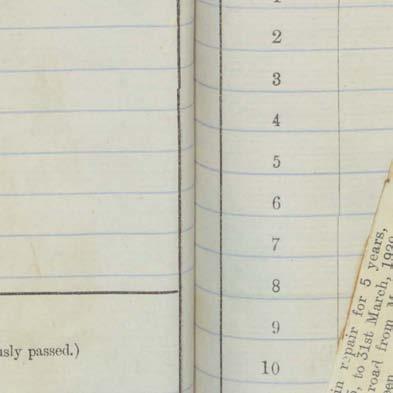 usly passed.)
2
3
4
5
6
7
8
9
10
in repair for 5 years,
, to 31st March,
road from